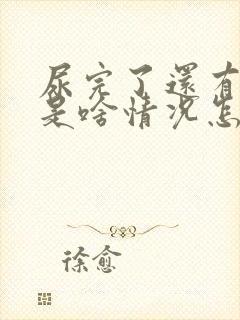 尿完了還有
是啥情况怎
徐愈